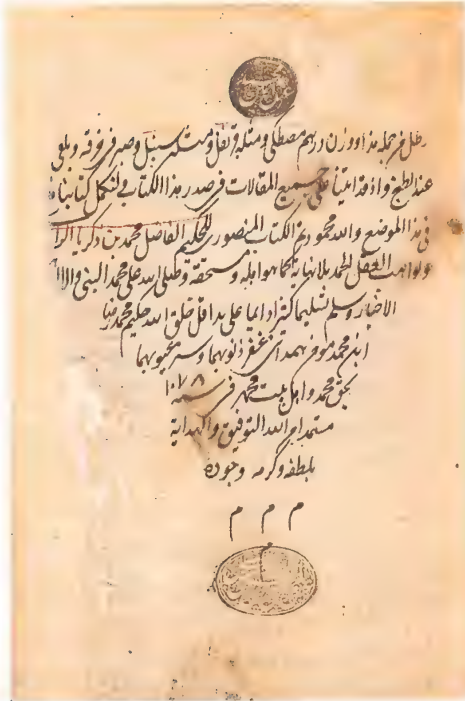 رطل فرجمله هذا ووزن درهم مصطكى ومثله قرنفل ومثله سنبل وصبر فى خرقة ويلقى
عند الطبخ واذ قد اتينا على جميع المقالات فى صدر هذا الكتاب فلنكمل كتابنا
فى هذا الموضع والله محمود تم الكتاب المنصورى للحكيم الفاضل محمد بن زكريا الرا
ولواهب العقل الحمد بلا نهاية كما هو اهله ومستحقه وصلى الله على محمد النبى والاا
الاخيار وسلم تسليما كثيرا دايما على يد اقل خلق الله حكيم محمد رضا
ابن محمد مومن همدانى غفر ذنوبهما وستر عيوبهما
بحق محمد واهل بيت محمد فى سنه ١٠٧٨
مستمدا من الله التوفيق والهداية
بلطفه وكرمه وجوده
م م م